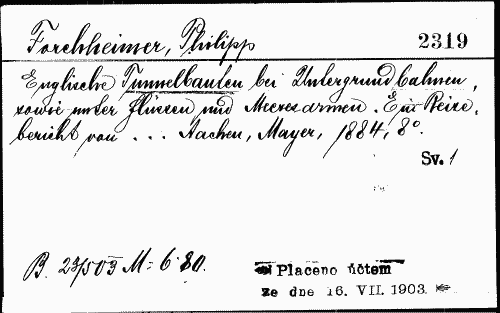 Forchheimer, Philipp
2319
Englische Tunnelbauten bei Untergrundbahnen,
sowie unter Flüssen und Meeresarmen. Ein Reise-
bericht von ... Aachen, Mayer, 1884, 8°.
Sv. 1
B. 23/5 03 M: 6·80.
Placeno účtem
ze dne 16. VII. 1903.